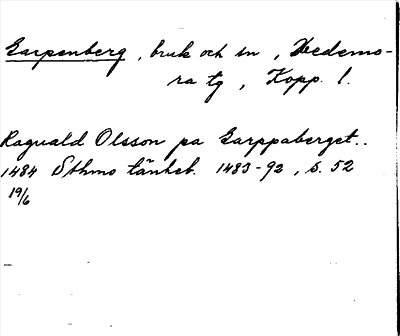 Garpenberg, bruk och sn, Hedemo-
ra tg, Kopp. l.
Ragvald Olsson pa Garppaberget..
1484 Sthms tänkeb. 1483-92, s. 52
19/6